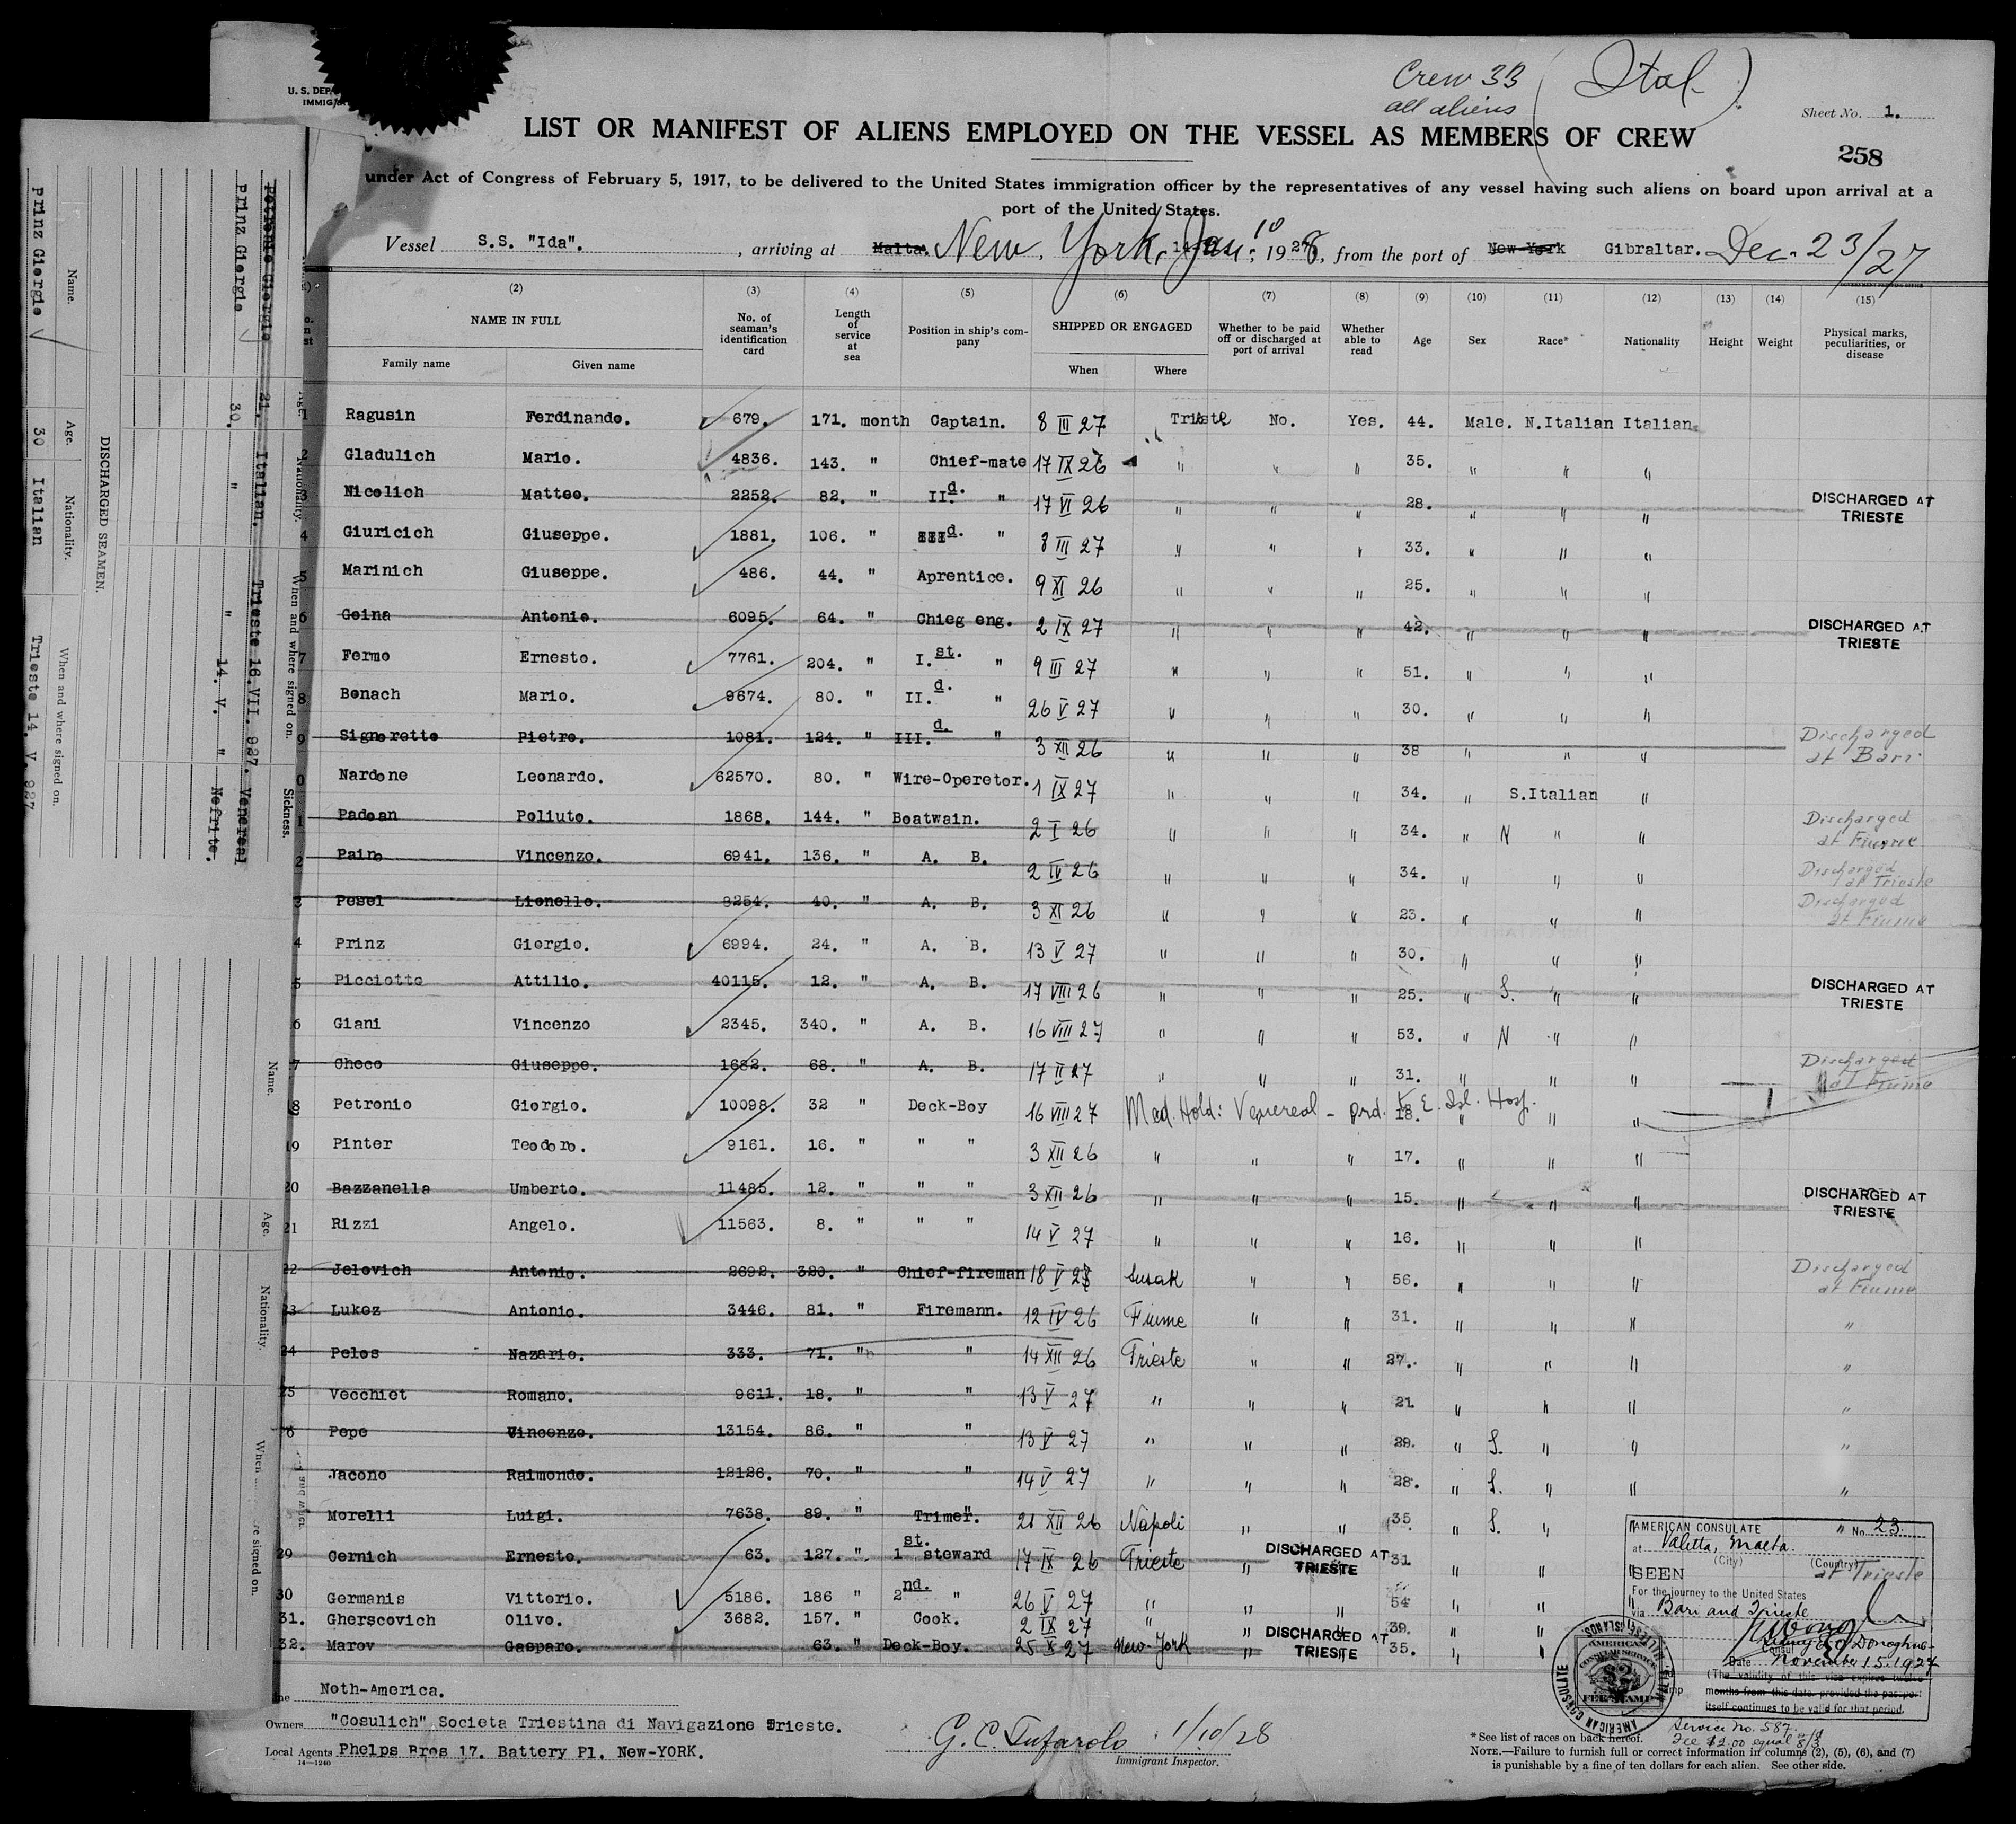 U. S. DEP
IMMIG
Crew 33 ( Ital. )
all aliens
Sheet No. 1.
LIST OR MANIFEST OF ALIENS EMPLOYED ON THE VESSEL AS MEMBERS OF CREW
258
under Act of Congress of February 5, 1917, to be delivered to the United States immigration officer by the representatives of any vessel having such aliens on board upon arrival at a
port of the United States.
Vessel S.S. "Ida". , arriving at Malta. New York, Jan. 10 , 1928, from the port of New-York Gibraltar. Dec. 23/27
(2) (3) (4) (5) (6) (7) (8) (9) (10) (11) (12) (13) (14) (15)
NAME IN FULL
Family name Given name
No. of seaman's identification card
Length of service at sea
Position in ship's company
SHIPPED OR ENGAGED
When Where
Whether to be paid off or discharged at port of arrival
Whether able to read
Age Sex Race* Nationality Height Weight
Physical marks, peculiarities, or disease
1 Ragusin Ferdinando. 679. 171. month Captain. 8 III 27 Trieste No. Yes. 44. Male. N.Italian Italian
2 Gladulich Mario. 4836. 143. " Chief-mate 17 IX 26 " " " 35. " " "
3 Nicolich Matteo. 2252. 82. " IId. " 17 VI 26 " " " 28. " " " DISCHARGED AT TRIESTE
4 Giuricich Giuseppe. 1881. 106. " IIId. " 8 III 27 " " " 33. " " "
5 Marinich Giuseppe. 486. 44. " Aprentice. 9 XI 26 " " " 25. " " "
6 Goina Antonio. 6095. 64. " Chieg eng. 2 IX 27 " " " 42. " " " DISCHARGED AT TRIESTE
7 Fermo Ernesto. 7761. 204. " I.st. " 9 III 27 " " " 51. " " "
8 Bonach Mario. 9674. 80. " II.d. " 26 V 27 " " " 30. " " "
9 Signoretto Pietro. 1081. 124. " III.d. " 3 XII 26 " " " 38 " " " Discharged at Bari
0 Nardone Leonardo. 62570. 80. " Wire-Operetor. 1 IX 27 " " " 34. " S.Italian "
1 Padoan Poliuto. 1868. 144. " Boatwain. 2 I 26 " " " 34. " N " " Discharged at Fiume
2 Paino Vincenzo. 6941. 136. " A. B. 2 IV 26 " " " 34. " " " Discharged at Trieste
3 Pesel Lionello. 8254. 40. " A. B. 3 XI 26 " " " 23. " " " Discharged at Fiume
4 Prinz Giorgio. 6994. 24. " A. B. 13 V 27 " " " 30. " " "
5 Picciotto Attilio. 40115. 12. " A. B. 17 VIII 26 " " " 25. " S. " " DISCHARGED AT TRIESTE
6 Giani Vincenzo 2345. 340. " A. B. 16 VIII 27 " " " 53. " N " "
7 Checo Giuseppe. 1682. 68. " A. B. 17 II 27 " " " 31. " " " Discharged at Fiume
8 Petronio Giorgio. 10098. 32 " Deck-Boy 16 VIII 27 Med. Hold: Venereal - prd. to E. Isl. Hosp. 18. " " "
19 Pinter Teodoro. 9161. 16. " " " 3 XII 26 " " " 17. " " "
20 Bazzanella Umberto. 11485. 12. " " " 3 XII 26 " " " 15. " " " DISCHARGED AT TRIESTE
21 Rizzi Angelo. 11563. 8. " " " 14 V 27 " " " 16. " " "
22 Jelovich Antonio. 2692. 320. " Chief-fireman 18 V 27 Susak " " 56. " " " Discharged at Fiume
23 Lukez Antonio. 3446. 81. " Firemann. 12 IV 26 Fiume " " 31. " " " "
24 Pelos Nazario. 333. 71. " " 14 XII 26 Trieste " " 27. " " " "
25 Vecchiet Romano. 9611. 18. " " 13 V 27 " " " 21 " " " "
6 Pepe Vincenzo. 13154. 86. " " 13 V 27 " " " 29. " S. " " "
Yacono Raimondo. 12126. 70. " " 14 V 27 " " " 28. " S. " " "
Morelli Luigi. 7638. 89. " Trimer. 21 XII 26 Napoli " " 35 " S. " "
29 Cernich Ernesto. 63. 127. " 1st. steward 17 IX 26 Trieste " DISCHARGED AT TRIESTE 31 " "
30 Germanis Vittorio. 5186. 186 " 2nd. " 26 V 27 " " " 54 " "
31. Gherscovich Olivo. 3682. 157. " Cook. 2 IX 27 " " " 39. " "
32. Marov Gasparo. 63. " Deck-Boy. 25 X 27 New-York " DISCHARGED AT TRIESTE 35. " "
AMERICAN CONSULATE No. 23
at Valetta, Malta.
(City) (Country)
at Trieste
SEEN
For the journey to the United States
via Bari and Trieste
Consul
Date November 15. 1927
(The validity of this visa expires twelve
months from this date, provided the passport
itself continues to be valid for that period.
AMERICAN CONSULATE
AMERICAN
CONSULAR SERVICE
$2
FEE STAMP
Service No. 587.
Fee $2.00 equal 8/3
Noth-America.
Owners "Cosulich" Societa Triestina di Navigazione Trieste.
Local Agents Phelps Bros 17. Battery Pl. New-YORK.
14—1240
G. C. Tufarolo 1/10/28
Immigrant Inspector.
* See list of races on back hereof.
NOTE.—Failure to furnish full or correct information in columns (2), (5), (6), and (7)
is punishable by a fine of ten dollars for each alien. See other side.
DISCHARGED SEAMEN.
Name. Age. Nationality. When and where signed on.
Prinz Giorgio 30 Italian Trieste 14. V. 927
Nationality. When and where signed on. Sickness.
Petronio Giorgio 21. Italian. Trieste 16.VII. 927. Venereal
Prinz Giorgio 30. " " 14. V. " Nefrite.
Name. Age. Nationality. When re signed on.